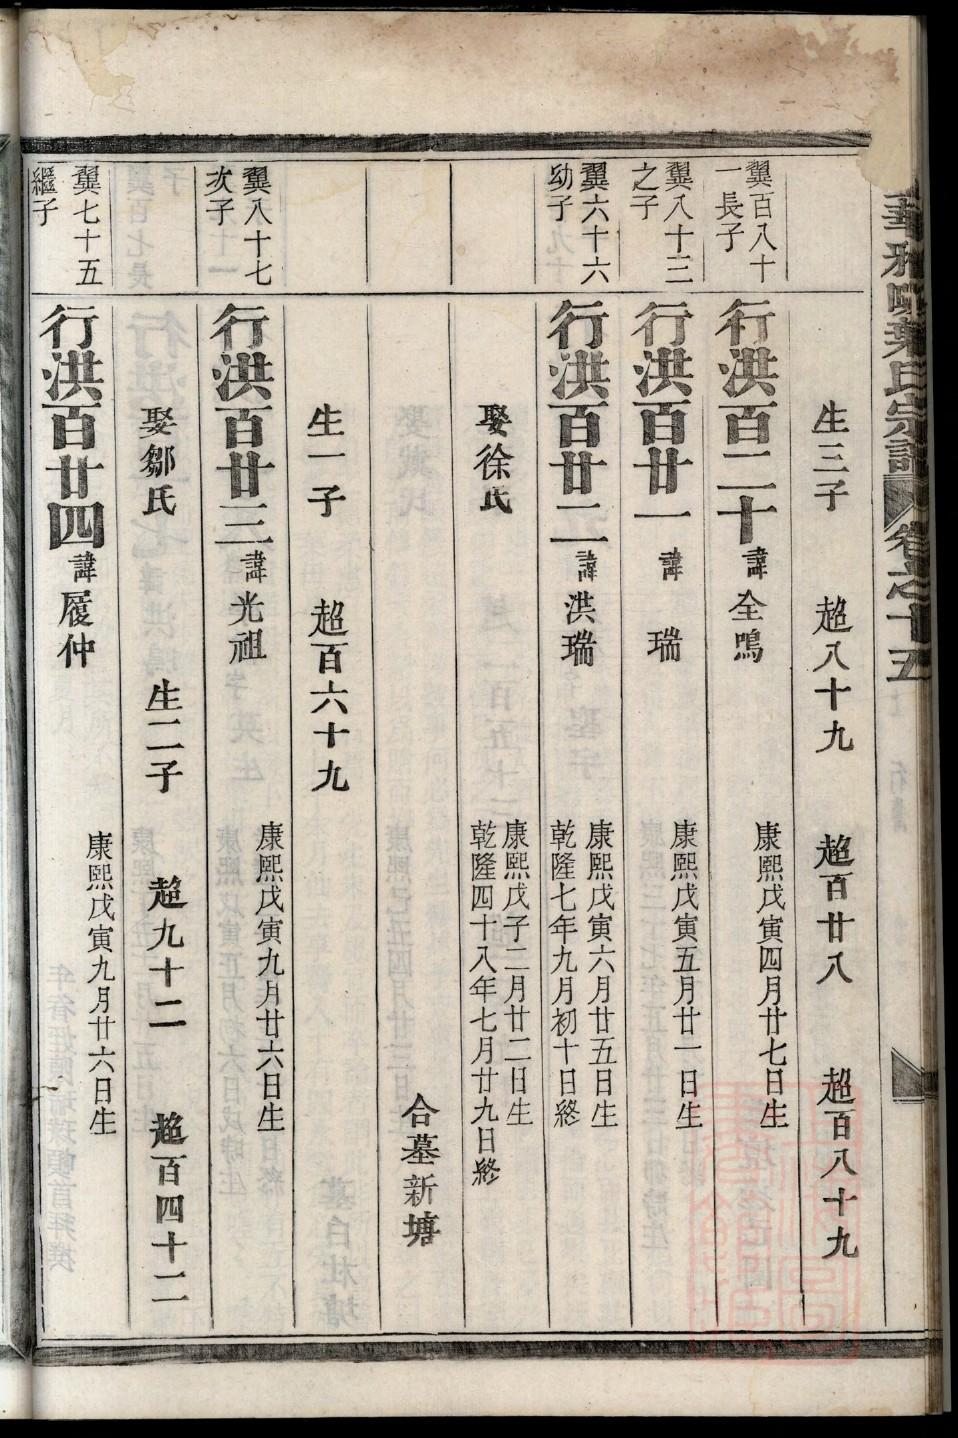 華雅畈葉氏宗譜 卷之十五
生三子 超八十九 超百廿八 超百八十九
翼百八十
一長子
行洪百二十 諱全鳴 康熙戊寅四月廿七日生
翼八十三
之子
行洪百廿一 諱瑞 康熙戊寅五月廿一日生
翼六十六
幼子
行洪百廿二 諱洪瑞 康熙戊寅六月廿五日生
乾隆七年九月初十日終
娶徐氏 康熙戊子二月廿二日生
乾隆四十八年七月廿九日終
合墓新塘
生一子 超百六十九
翼八十七
次子
行洪百廿三 諱光祖 康熙戊寅九月廿六日生
娶鄒氏 生二子 超九十二 超百四十二
翼七十五
繼子
行洪百廿四 諱履仲 康熙戊寅九月廿六日生